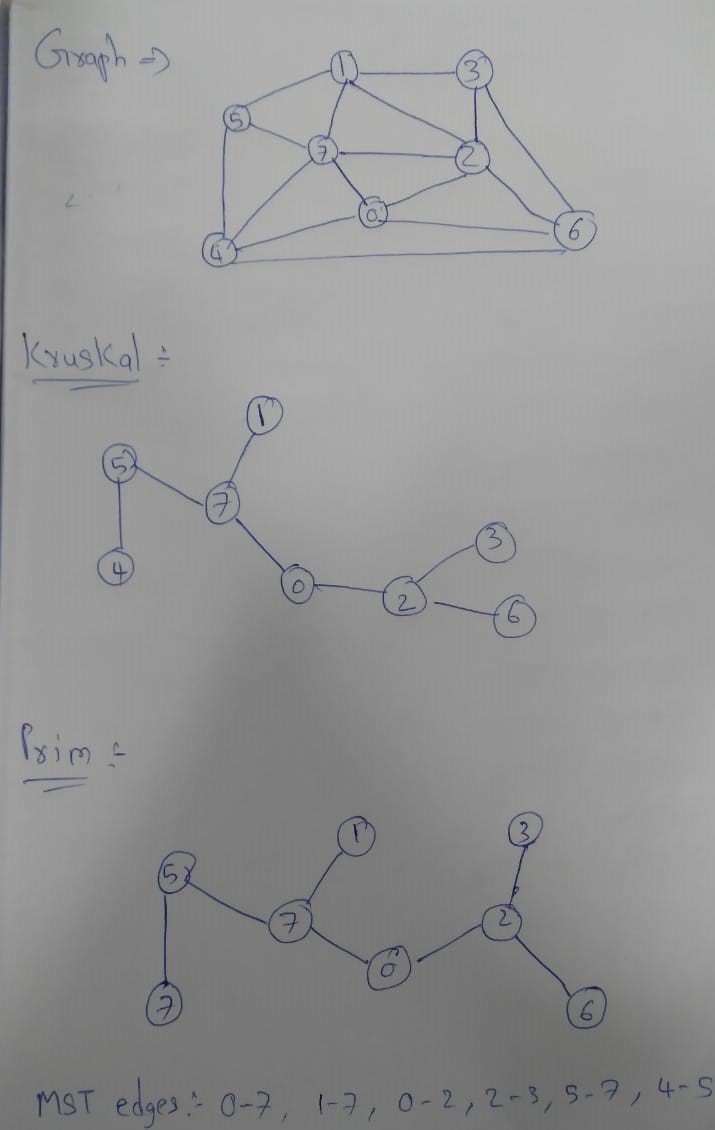 Graph =>
1 3
5
7 2
0
6
4
Kruskal :-
1
5
7
3
4
0 2
6
Prim :-
1 3
5
7 2
0
7 6
MST edges :- 0-7, 1-7, 0-2, 2-3, 5-7, 4-5